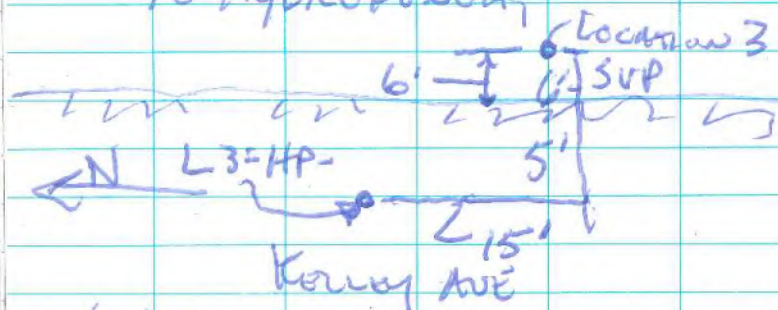 Location 3
6' 6' SVP
5'
N L3-HP-
15'
Kelley AVE